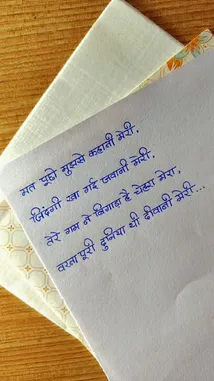 मत पूछो मुझसे कहानी मेरी,
ज़िंदगी खा गई जवानी मेरी,
तेरे गम ने बिगाड़ा है चेहरा मेरा,
वरना पूरी दुनिया थी दीवानी मेरी...